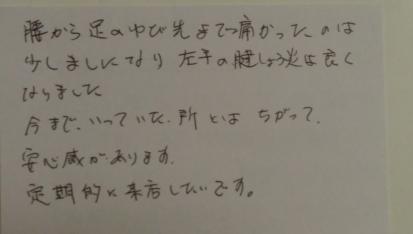 腰から足のゆび先まで痛かったのは
少しましになり 左手の腱しょう炎は良く
なりました
今まで、いっていた、所とは ちがって、
安心感があります。
定期的に来店したいです。